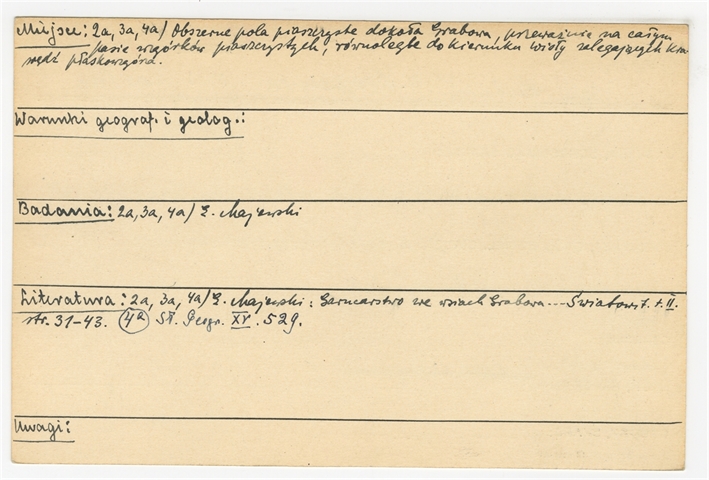 Miejsce: 2a, 3a, 4a/ Obszerne pola piaszczyste dokoła Grabowa, przeważnie na całym
pasie wzgórków piaszczystych, równolegle do kierunku Wisły zalegających kra-
wędź płaskowzgórza.
Warunki geograf. i geolog.:
Badania: 2a, 3a, 4a/ E. Majewski
Literatura: 2a, 3a, 4a/ E. Majewski: Garncarstwo we wsiach Grabowa --- Światowit. t. II.
str. 31-43. (4a) Sł. Geogr. XV. 529.
Uwagi: